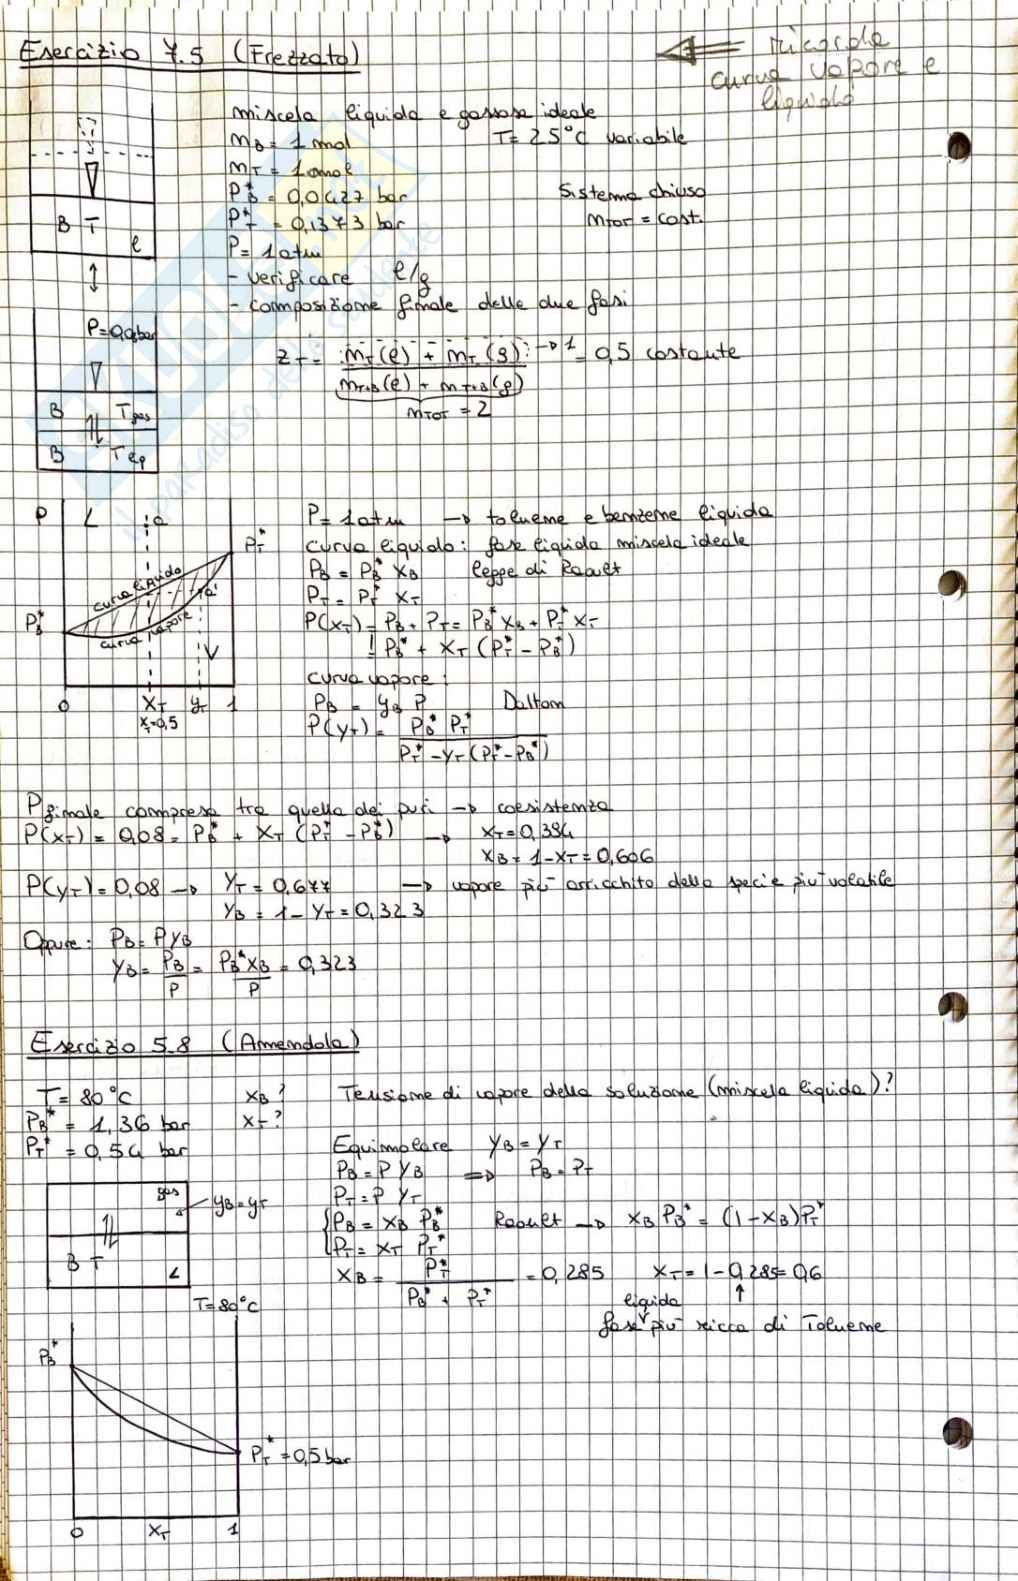 Esercizio 7.5 (Frezzato)
ricorda
curva vapore e
liquido
miscela liquida e gassosa ideale
n_B = 1 mol
T = 25°C variabile
n_T = 1 mol
P_B* = 0,0427 bar
Sistema chiuso
P_T* = 0,1373 bar
n_TOT = cost.
P = 1 atm
- verificare l/g
- composizione finale delle due fasi
B T
l
P=0,08bar
B T gas
B T liq
Z_T = n_T(l) + n_T(g) → 1 = 0,5 costante
n_T+B(l) + n_T+B(g)
n_TOT = 2
P L a
P_T*
curva liquido
a'
P_B*
curva vapore
V
0 X_T Y_T 1
X_T=0,5
P = 1 atm → toluene e benzene liquida
curva liquido: fase liquida miscela ideale
P_B = P_B* X_B legge di Raoult
P_T = P_T* X_T
P(X_T) = P_B + P_T = P_B* X_B + P_T* X_T
! P_B* + X_T (P_T* - P_B*)
curva vapore:
P_B = y_B P Dalton
P(y_T) = P_B* P_T*
P_T* - Y_T (P_T* - P_B*)
P finale compresa tra quella dei puri → coesistenza
P(X_T) = 0,08 = P_B* + X_T (P_T* - P_B*) → X_T = 0,394
X_B = 1 - X_T = 0,606
P(Y_T) = 0,08 → Y_T = 0,677 → vapore più arricchito della specie più volatile
Y_B = 1 - Y_T = 0,323
Oppure: P_B = P Y_B
Y_B = P_B/P = P_B* X_B/P = 0,323
Esercizio 5.8 (Amendola)
T = 80°C X_B? Tensione di vapore della soluzione (miscela liquida)?
P_B* = 1,36 bar X_T?
P_T* = 0,54 bar
Equimolare Y_B = Y_T
P_B = P Y_B ⇒ P_B = P_T
P_T = P Y_T
gas
y_B = y_T
P_B = X_B P_B* Raoult → X_B P_B* = (1 - X_B) P_T*
P_T = X_T P_T*
B T
L
X_B = P_T* / P_B* + P_T* = 0,285 X_T = 1 - 0,285 = 0,6
T = 80°C
liquida
fase più ricca di Toluene
P_B*
P_T* = 0,5 bar
0 X_T 1